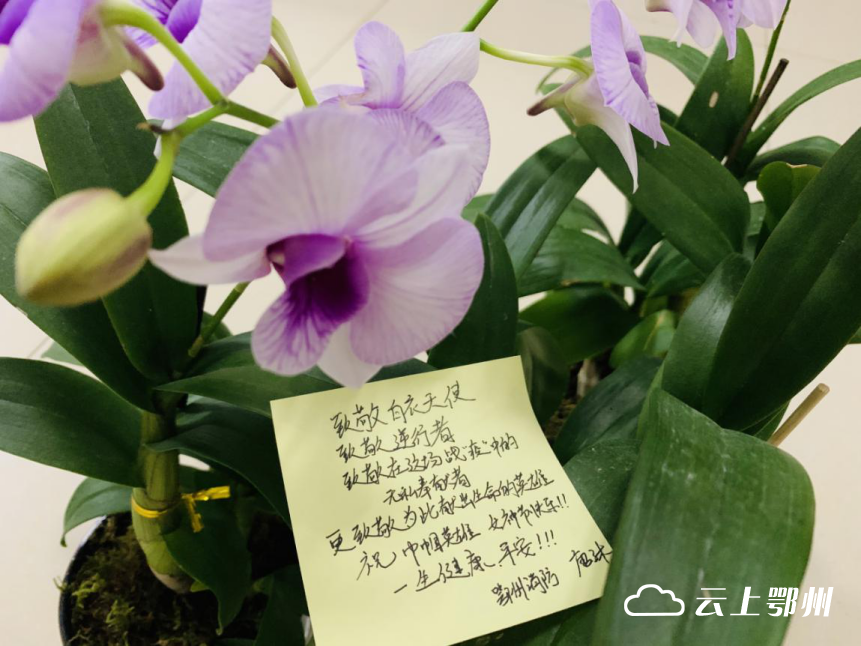 致敬白衣天使
致敬逆行者
致敬在这场战"疫"中的
无私奉献者
更致敬为此献出生命的英雄
祝 巾帼英雄 女神节快乐!!
一生健康、平安!!!
鄂州消防
云上鄂州